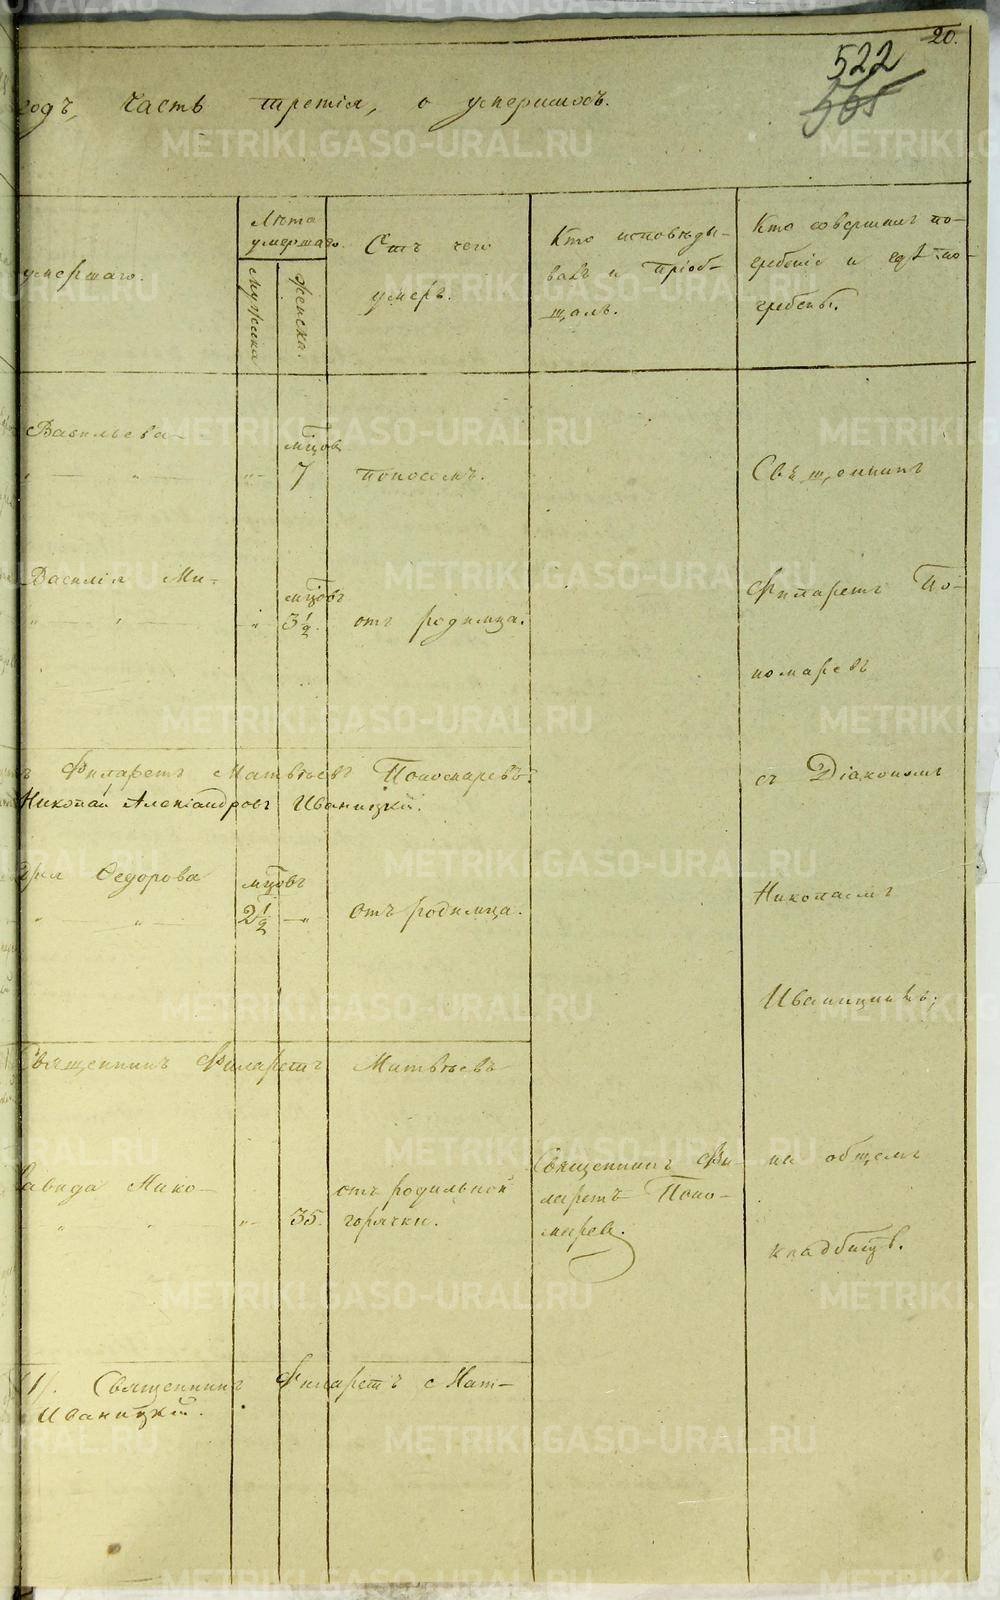 20.
522
565
годъ, часть третія, о умершихъ.
умершаго.
Лѣта умершаго.
мужска
женска.
Отъ чего умеръ.
Кто исповѣды-
валъ и пріоб-
щалъ.
Кто совершалъ по-
гребеніе и гдѣ по-
гребены.
Васильева
мцовъ
7
поносомъ.
Священникъ
Василія Ми-
мцовъ
3 1/2
отъ родимца.
Филаретъ По-
номаревъ
Филаретъ Матвѣевъ Пономаревъ.
Николай Александровъ Иваницкій.
съ Діакономъ
Федорова
мцовъ
2 1/2
отъ родимца.
Николаемъ
Иваницкимъ;
Священникъ Филаретъ Матвѣевъ
Давида Нико-
35.
отъ родильной
горячки.
Священникъ Фи-
ларетъ Поно-
маревъ.
на общемъ
кладбищѣ.
Священникъ Филаретъ Мат-
Иваницкій.
METRIKI.GASO-URAL.RU